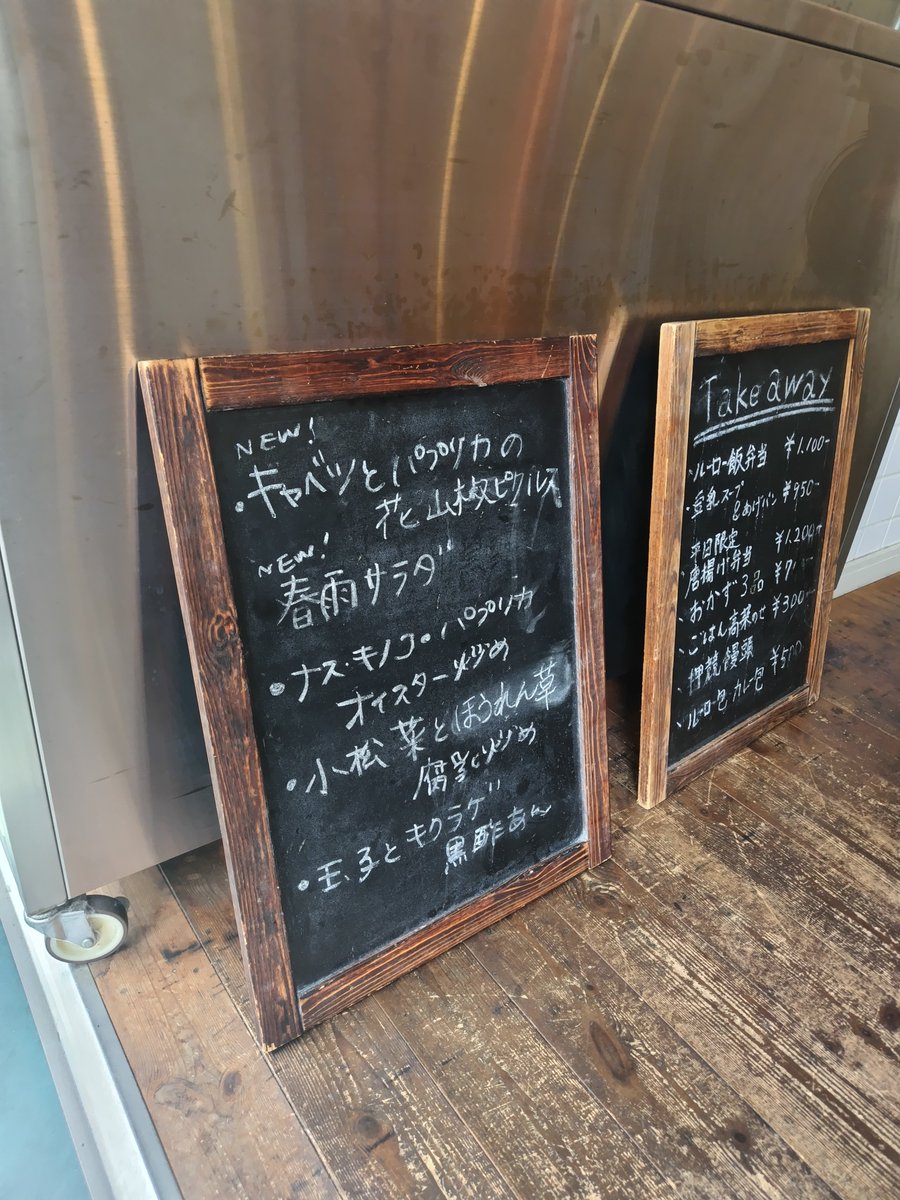 NEW!
・キャベツとパプリカの
花山椒ピクルス
NEW!
春雨サラダ
・ナス・キノコ・パプリカ
オイスター炒め
・小松菜とほうれん草
腐乳炒め
・玉子とキクラゲ
黒酢あん
Take away
・ルーロー飯弁当 ¥1.100-
・豆乳スープ
&あげパン ¥950-
平日限定
・唐揚げ弁当 ¥1.200-
・おかず3品
・ごはん高菜のせ ¥300-
・押焼饅頭
・ルーロー包 カレー包 ¥500-